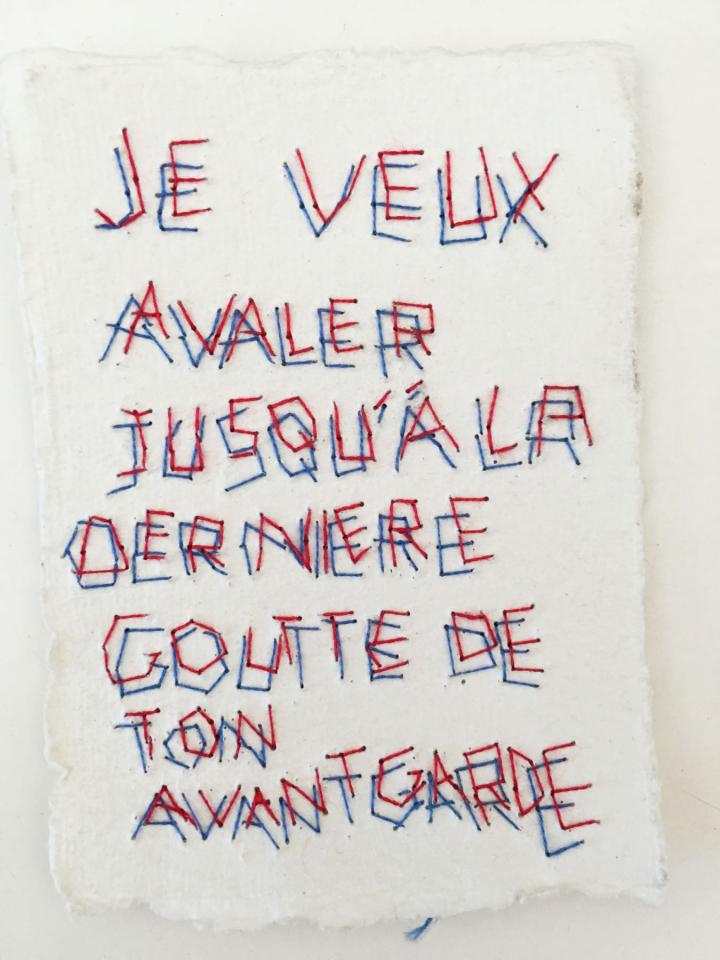 JE VEUX
AVALER
JUSQU'À LA
DERNIERE
GOUTTE DE
TON
AVANTGARDE